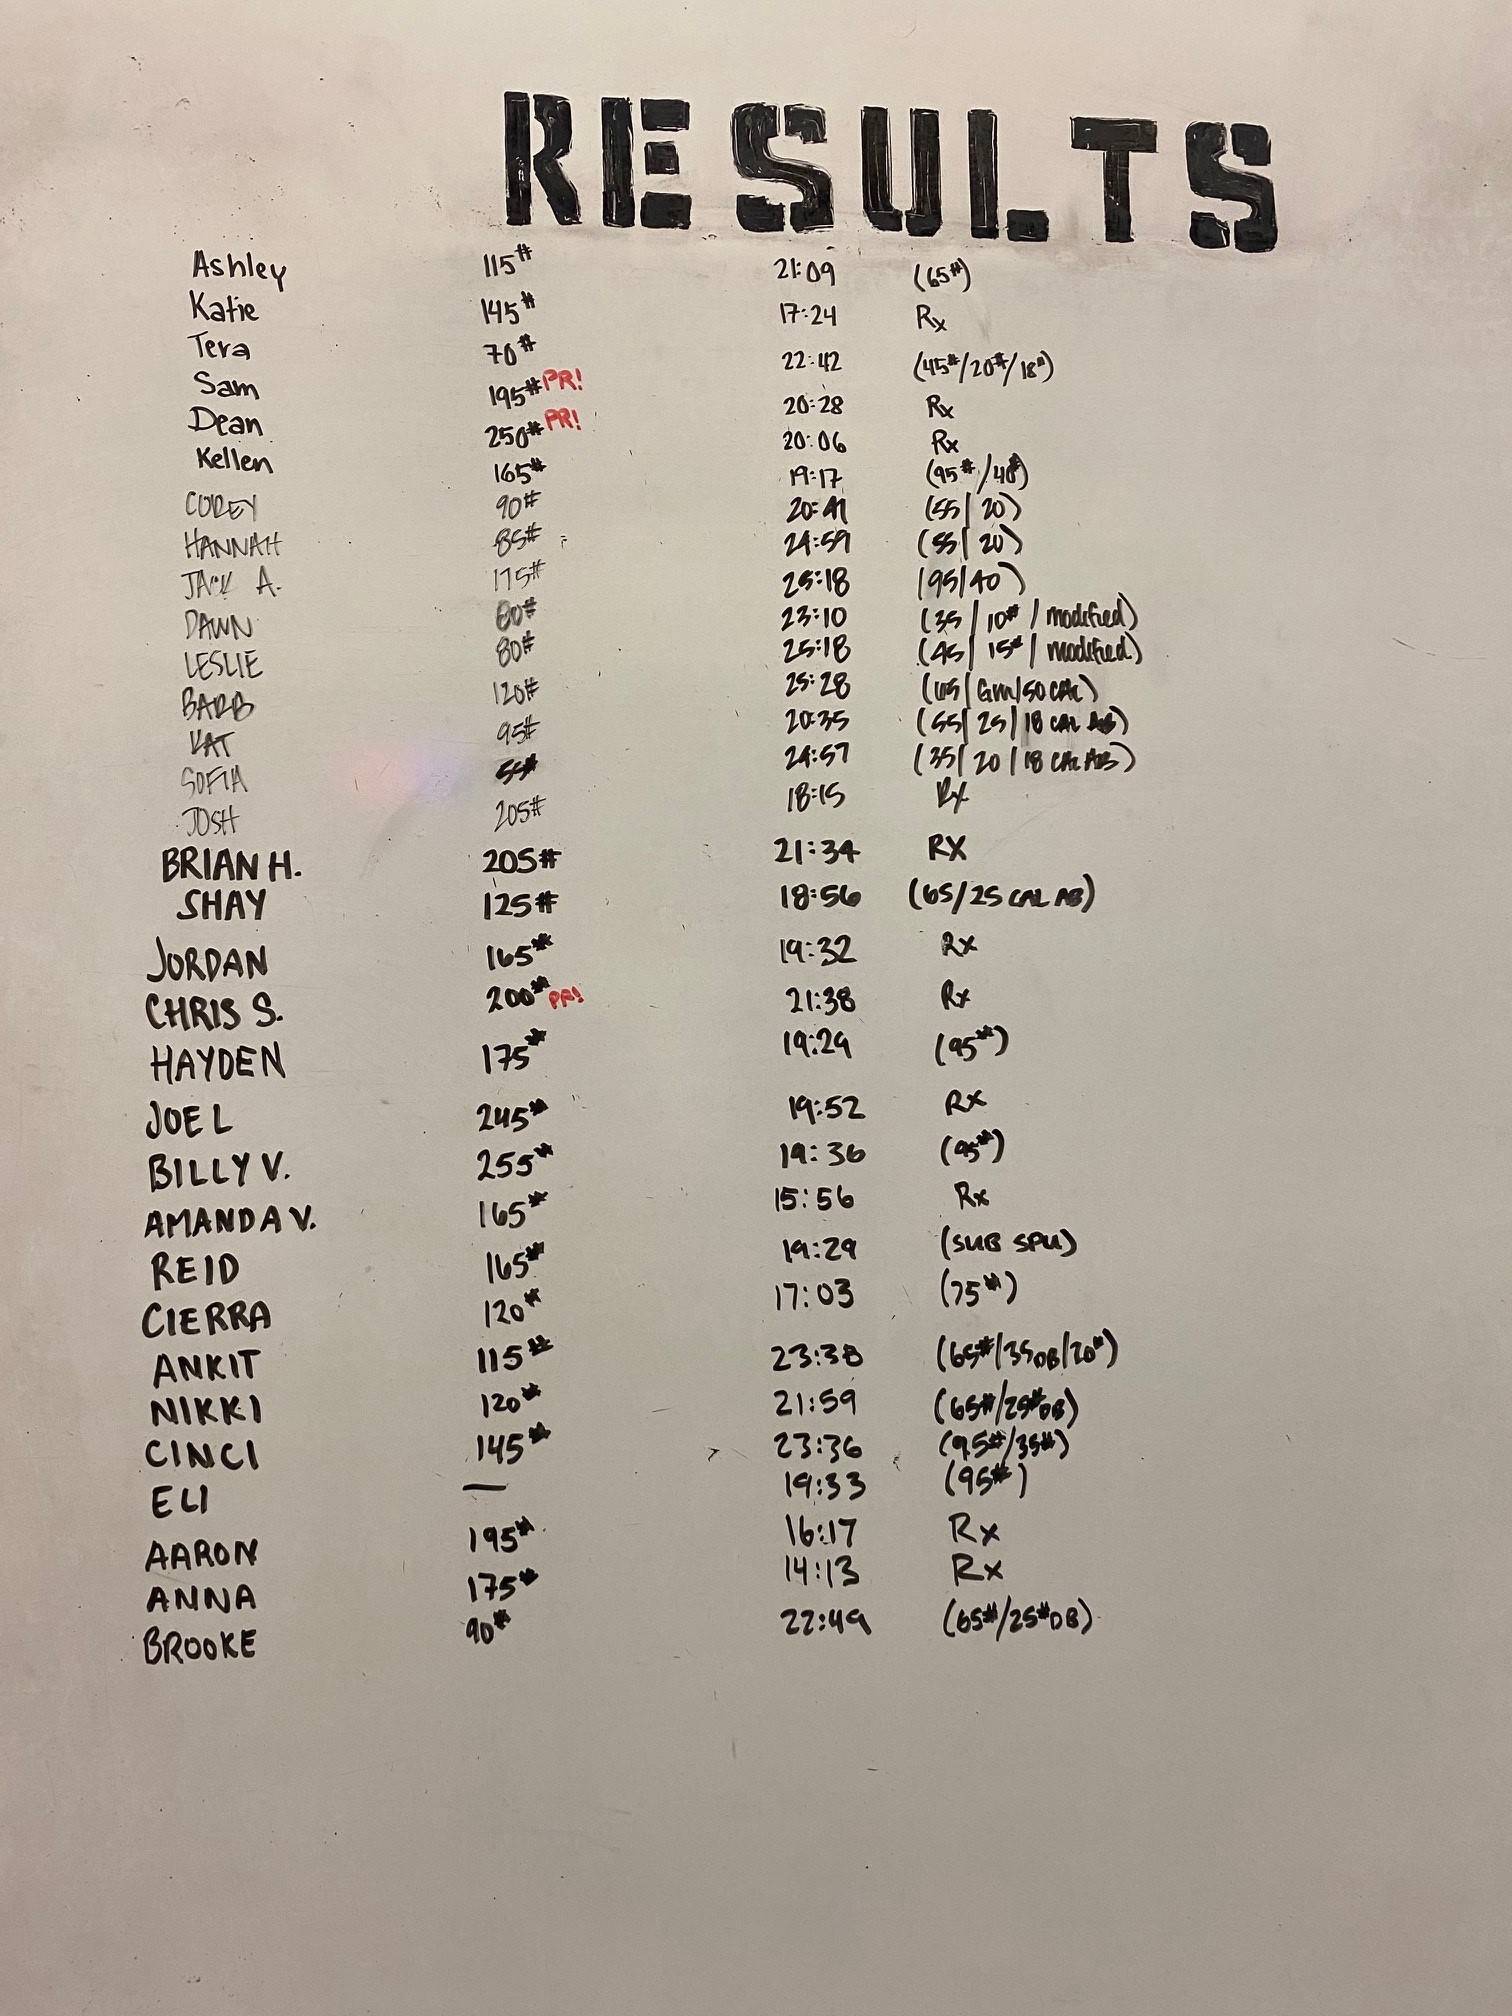 RESULTS
Ashley 115# 21:09 (65#)
Katie 145# 17:24 Rx
Tera 70# 22:42 (45#/20#/18#)
Sam 195# PR! 20:28 Rx
Dean 250# PR! 20:06 Rx
Kellen 165# 19:17 (95#/40#)
COREY 90# 20:41 (55/20)
HANNAH 85# 24:59 (55/20)
JACK A. 175# 25:18 (95/40)
DAWN 80# 23:10 (35/10#/modified)
LESLIE 80# 25:18 (45/15#/modified)
BARB 120# 25:28 (65/6m/50 CAL)
KAT 95# 20:35 (55/25/18 CAL AB)
SOFIA 55# 24:57 (35/20/18 CAL AB)
JOSH 205# 18:15 Rx
BRIAN H. 205# 21:34 RX
SHAY 125# 18:56 (65/25 CAL AB)
JORDAN 165# 19:32 Rx
CHRIS S. 200# PR! 21:38 Rx
HAYDEN 175# 19:29 (95#)
JOEL 245# 19:52 Rx
BILLY V. 255# 19:36 (95#)
AMANDA V. 165# 15:56 Rx
REID 165# 19:29 (SUB SPU)
CIERRA 120# 17:03 (75#)
ANKIT 115# 23:38 (65#/35DB/20#)
NIKKI 120# 21:59 (65#/25#DB)
CINCI 145# 23:36 (95#/35#)
ELI — 19:33 (95#)
AARON 195# 16:17 Rx
ANNA 175# 14:13 Rx
BROOKE 90# 22:49 (65#/25#DB)